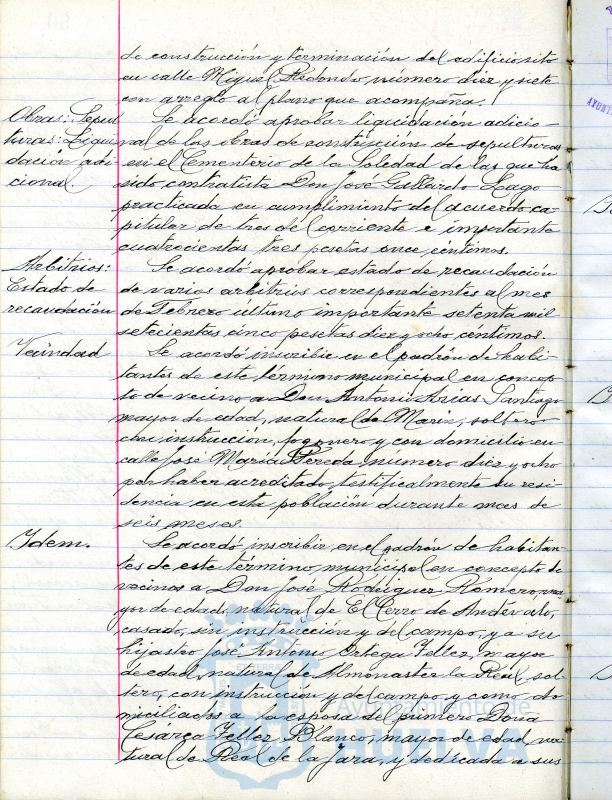 de construcción y terminación del edificio sito
en calle Miguel Redondo, número diez y siete
con arreglo al plano que acompaña.
Obras: Sepul
turas: Liqui
dación adi-
cional.
Se acordó aprobar liquidación adicio-
nal de las obras de construcción de sepulturas
en el Cementerio de la Soledad de las que ha
sido contratista Don José Gallardo Lago
practicada en cumplimiento del acuerdo ca-
pitular de tres del corriente e importante
cuatrocientas tres pesetas once céntimos.
Arbitrios:
Estado de
recaudación
Se acordó aprobar estado de recaudación
de varios arbitrios correspondientes al mes
de Febrero último importante setenta mil
setecientas cinco pesetas diez y ocho céntimos.
Vecindad
Se acordó inscribir en el padrón de habi-
tantes de este término municipal en concep-
to de vecino a Don Antonio Arias Santiago
mayor de edad, natural de Marin, soltero
con instrucción, fogonero y con domicilio en
calle José María Pereda, número diez y ocho
por haber acreditado testificalmente su resi-
dencia en esta población durante mas de
seis meses.
Idem.
Se acordó inscribir en el padrón de habitan-
tes de este término municipal en concepto de
vecinos a Don José Rodríguez Romero, ma
yor de edad, natural de El Cerro de Andévalo,
casado, sin instrucción y del campo, y a su
hijastro José Antonio Ortega Vellez, mayor
de edad, natural de Almonaster la Real, sol-
tero, con instrucción y de campo y como do
miciliados a la esposa del primero Doña
Cesarea Vellez Blanco, mayor de edad, na-
tural de Real de la Jara, y dedicada a sus
Ayuntamiento de
HUELVA